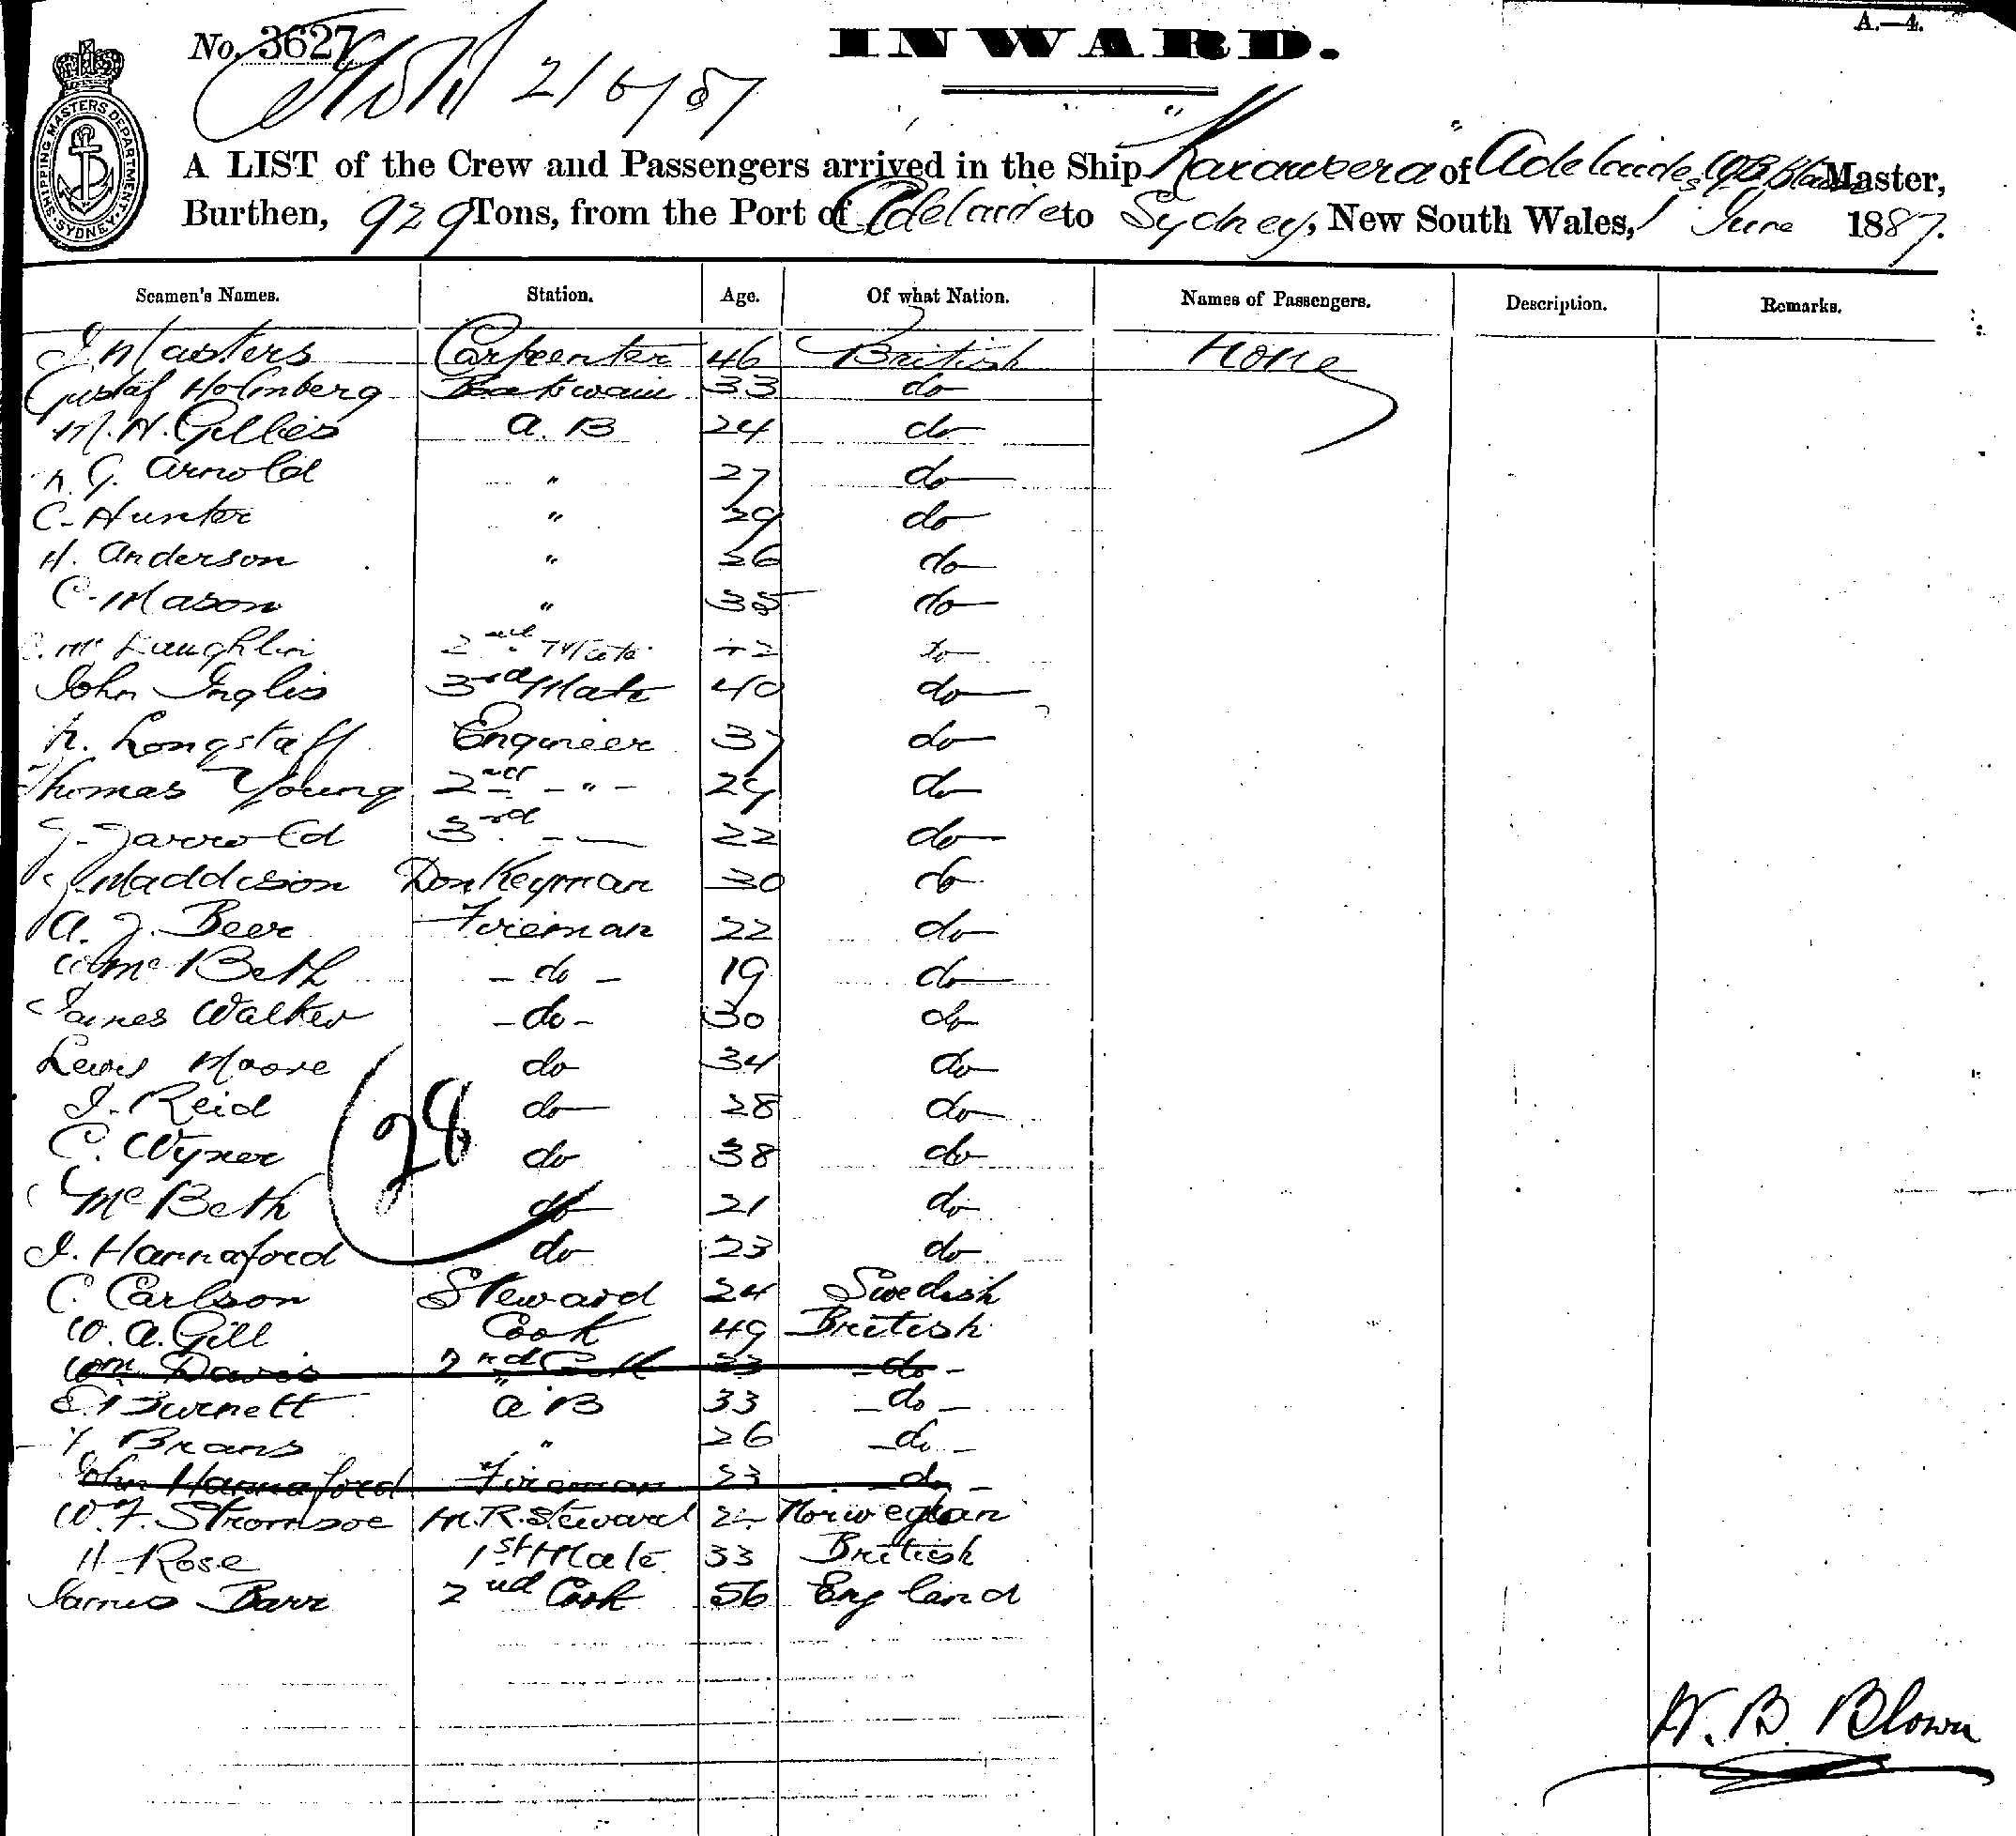 No. 3627
INWARD.
A.—4.
2/6/87
SHIPPING MASTERS DEPARTMENT SYDNEY
A LIST of the Crew and Passengers arrived in the Ship Karaweera of Adelaide, Master,
Burthen, 929 Tons, from the Port of Adelaide to Sydney, New South Wales, 1 June 1887.
Seamen's Names. Station. Age. Of what Nation. Names of Passengers. Description. Remarks.
J Masters Carpenter 46 British None
Gustaf Holmberg Boatswain 33 do
M. H. Gillies A. B 24 do
G. Arnold " 27 do
C. Hunter " 29 do
H. Anderson " 26 do
C. Mason " 35 do
McLaughlin 2nd Mate do
John Inglis 3rd Mate 40 do
R. Longstaff Engineer 37 do
Thomas Young 2nd - " - 29 do
J. Jarrold 3rd - — 22 do
J. Maddison Donkeyman 30 do
A. J. Beer Fireman 22 do
Wm McBeth - do - 19 do
James Walker - do - 30 do
Lewis Moore do 34 do
J. Reid do 28 do
28
C. Wyner do 38 do
McBeth do 21 do
J. Hannaford do 23 do
C. Carlson Steward 24 Swedish
W. A. Gill Cook 49 British
Wm Davis 2nd Cook 33 - do -
E. Burnett A B 33 - do -
Brans " 26 - do -
John Hannaford Fireman 23 do -
W. F. Stromsoe M. R. Steward Norwegian
H. Rose 1st Mate 33 British
James Barr 2nd Cook 56 England
W. B. Blown